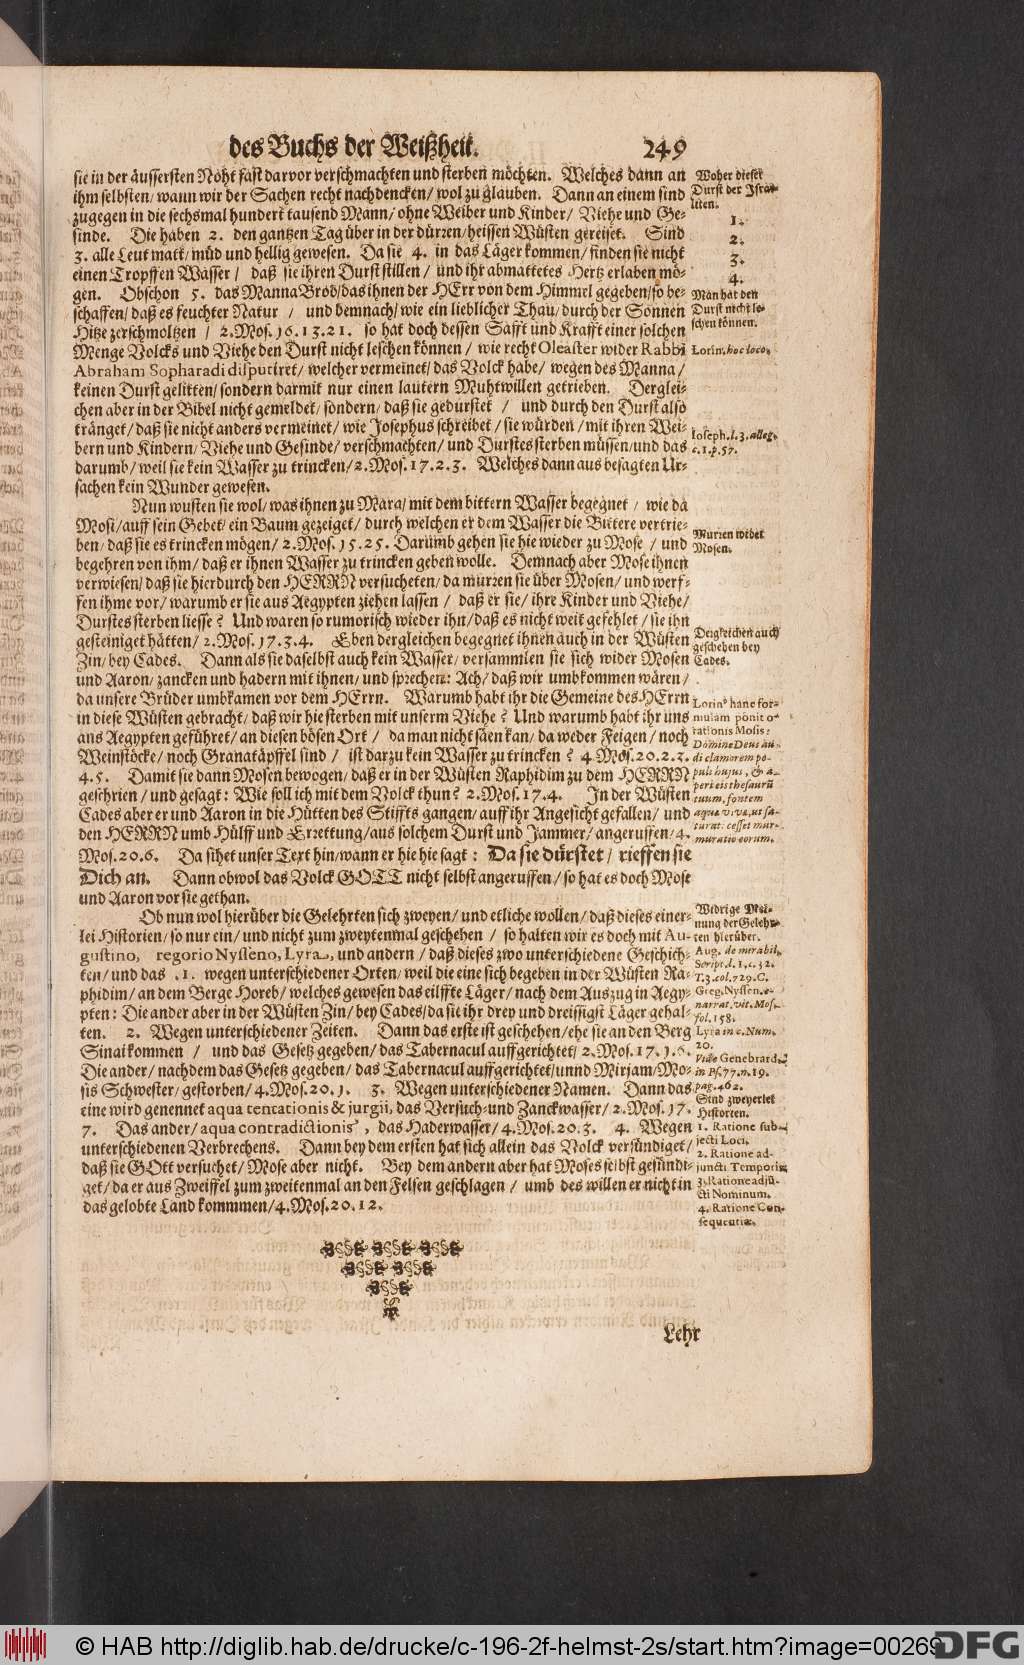 des Buchs der Weißheit. 249
sie in der äussersten Noht fast darvor verschmachten und sterben möchten. Welches dann an
ihm selbsten/ wann wir der Sachen recht nachdencken/ wol zu glauben. Dann an einem sind
zugegen in die sechsmal hundert tausend Mann/ ohne Weiber und Kinder/ Viehe und Ge-
sinde. Die haben 2. den gantzen Tag über in der dürren/ heissen Wüsten gereiset. Sind
3. alle Leut matt/ müd und hellig gewesen. Da sie 4. in das Läger kommen/ finden sie nicht
einen Tropffen Wasser/ daß sie ihren Durst stillen/ und ihr abmattetes Hertz erlaben mö-
gen. Obschon 5. das Manna Brod/ das ihnen der HErr von dem Himmel gegeben/ so be-
schaffen/ daß es feuchter Natur/ und demnach/ wie ein lieblicher Thau/ durch der Sonnen
Hitze zerschmoltzen/ 2. Mos. 16. 13. 21. so hat doch dessen Safft und Krafft einer solchen
Menge Volcks und Viehe den Durst nicht leschen können/ wie recht Oleaster wider Rabbi
Abraham Sopharadi disputiret/ welcher vermeinet/ das Volck habe/ wegen des Manna/
keinen Durst gelitten/ sondern darmit nur einen lautern Muhtwillen getrieben. Derglei-
chen aber in der Bibel nicht gemeldet/ sondern/ daß sie gedürstet/ und durch den Durst also
tränget/ daß sie nicht anders vermeinet/ wie Josephus schreibet/ sie würden/ mit ihren Wei-
bern und Kindern/ Viehe und Gesinde/ verschmachten/ und Durstes sterben müssen/ und das
darumb/ weil sie kein Wasser zu trincken/ 2. Mos. 17. 2. 3. Welches dann aus besagten Ur-
sachen kein Wunder gewesen.
Nun wusten sie wol/ was ihnen zu Mara/ mit dem bittern Wasser begegnet/ wie da
Mosi/ auff sein Gebet/ ein Baum gezeiget/ durch welchen er dem Wasser die Bittere vertrie-
ben/ daß sie es trincken mögen/ 2. Mos. 15. 25. Darumb gehen sie hie wieder zu Mose/ und
begehren von ihm/ daß er ihnen Wasser zu trincken geben wolle. Demnach aber Mose ihnen
verwiesen/ daß sie hierdurch den HERRN versucheten/ da murren sie über Mosen/ und werf-
fen ihme vor/ warumb er sie aus Aegypten ziehen lassen/ daß er sie/ ihre Kinder und Viehe/
Durstes sterben liesse? Und waren so rumorisch wieder ihn/ daß es nicht weit gefehlet/ sie ihn
gesteiniget hätten/ 2. Mos. 17. 3. 4. Eben dergleichen begegnet ihnen auch in der Wüsten
Zin/ bey Cades. Dann als sie daselbst auch kein Wasser/ versammlen sie sich wider Mosen
und Aaron/ zancken und hadern mit ihnen/ und sprechen: Ach/ daß wir umbkommen wären/
da unsere Brüder umbkamen vor dem HErrn. Warumb habt ihr die Gemeine des HErrn
in diese Wüsten gebracht/ daß wir hie sterben mit unserm Viehe? Und warumb habt ihr uns
aus Aegypten geführet/ an diesen bösen Ort/ da man nicht säen kan/ da weder Feigen/ noch
Weinstöcke/ noch Granatäpffel sind/ ist darzu kein Wasser zu trincken? 4. Mos. 20. 2. 3.
4. 5. Damit sie dann Mosen bewogen/ daß er in der Wüsten Raphidim zu dem HERRN
geschrien/ und gesagt: Wie soll ich mit dem Volck thun? 2. Mos. 17. 4. In der Wüsten
Cades aber er und Aaron in die Hütten des Stiffts gangen/ auff ihr Angesicht gefallen/ und
den HERRN umb Hülff und Errettung/ aus solchem Durst und Jammer/ angeruffen/ 4.
Mos. 20. 6. Da sihet unser Text hin/ wann er hie hie sagt: Da sie dürstet/ rieffen sie
Dich an. Dann obwol das Volck GOTT nicht selbst angeruffen/ so hat es doch Mose
und Aaron vor sie gethan.
Ob nun wol hierüber die Gelehrten sich zweyen/ und etliche wollen/ daß dieses einer-
lei Historien/ so nur ein/ und nicht zum zweytenmal geschehen/ so halten wir es doch mit Au-
gustino, regorio Nysseno, Lyra, und andern/ daß dieses zwo unterschiedene Geschich-
ten/ und das 1. wegen unterschiedener Orten/ weil die eine sich begeben in der Wüsten Ra-
phidim/ an dem Berge Horeb/ welches gewesen das eilffte Läger/ nach dem Auszug in Aegy-
pten: Die ander aber in der Wüsten Zin/ bey Cades/ da sie ihr drey und dreissigst Läger gehal-
ten. 2. Wegen unterschiedener Zeiten. Dann das erste ist geschehen/ ehe sie an den Berg
Sinai kommen/ und das Gesetz gegeben/ das Tabernacul auffgerichtet/ 2. Mos. 17. 1. 6.
Die ander/ nachdem das Gesetz gegeben/ das Tabernacul auffgerichtet/ unnd Mirjam/ Mo-
sis Schwester/ gestorben/ 4. Mos. 20. 1. 3. Wegen unterschiedener Namen. Dann das
eine wird genennet aqua tentationis & jurgii, das Versuch- und Zanckwasser/ 2. Mos. 17.
7. Das ander/ aqua contradictionis, das Haderwasser/ 4. Mos. 20. 3. 4. Wegen
unterschiedenen Verbrechens. Dann bey dem ersten hat sich allein das Volck versündiget/
daß sie GOtt versuchet/ Mose aber nicht. Bey dem andern aber hat Moses selbst gesündi-
get/ da er aus Zweiffel zum zweitenmal an den Felsen geschlagen/ umb des willen er nicht in
das gelobte Land kommmen/ 4. Mos. 20. 12.
Lehr
Woher dieser
Durst der Isra-
liten.
1.
2.
3.
4.
Man hat den
Durst nicht le-
schen können.
Lorin. hoc loco.
Ioseph. l. 3. alleg.
c. 1. p. 57.
Murren wider
Mosen.
Dergleichen auch
geschehen bey
Cades.
Lorin⁹ hanc for-
mulam ponit o-
rationis Mosis:
Domine Deus au-
di clamorem po-
puli hujus, & a-
peri eis thesaurū
tuum, fontem
aquæ vivæ, ut sa-
turati cesset mur-
muratio eorum.
Widrige Mei-
nung der Gelehr-
ten hierüber.
Aug. de mirabil.
Script. l. 1. c. 32.
T. 3. col. 729. C.
Greg. Nyssen. e-
narrat. vit. Mos.
fol. 158.
Lyra in c. Num.
20.
Vide Genebrard.
in Ps. 77. n. 19.
pag. 462.
Sind zweyerlei
Historien.
1. Ratione sub-
jecti Loci.
2. Ratione ad-
juncti Temporis
3. Ratione adjū-
cti Nominum.
4. Ratione Con-
sequutiæ.
© HAB http://diglib.hab.de/drucke/c-196-2f-helmst-2s/start.htm?image=00269
DFG